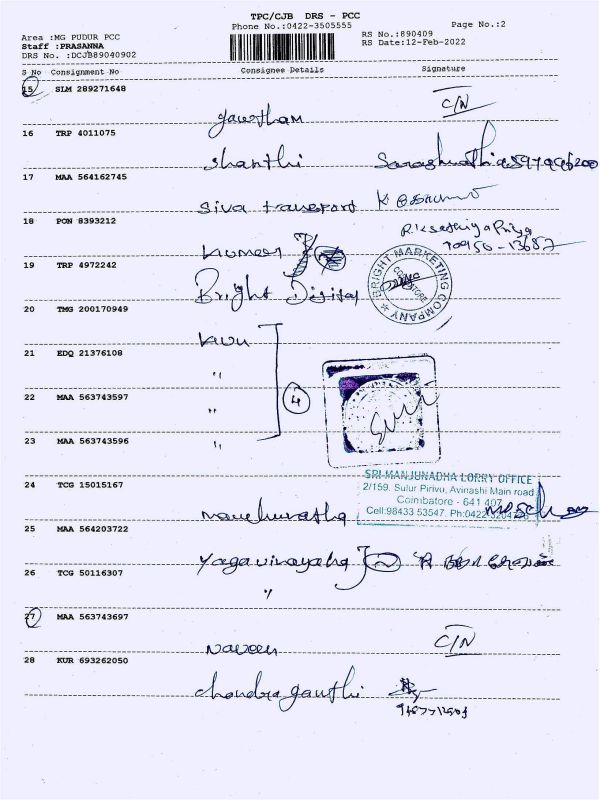 TPC/CJB DRS - PCC
Phone No.:0422-3505555
Page No.:2
Area :MG PUDUR PCC
Staff :PRASANNA
DRS No. :DCJB89040902
RS No.:890409
RS Date:12-Feb-2022
S No Consignment No Consignee Details Signature
15 SLM 289271648 C/N
gowtham
16 TRP 4011075
shanthi
17 MAA 564162745
siva transport K
18 PON 8393212
R.K sathiya Priya
kumar 70950-13687
19 TRP 4972242
Bright Digital
BRIGHT MARKETING COMPANY
COIMBATORE
20 TMG 200170949
21 EDQ 21376108
"
22 MAA 563743597
" 4
23 MAA 563743596
"
24 TCG 15015167
SRI MANJUNADHA LORRY OFFICE
2/159, Sulur Pirivu, Avinashi Main road
Coimbatore - 641 407
Cell:98433 53547. Ph:0422
25 MAA 564203722
yaga vinayaha
26 TCG 50116307
"
27 MAA 563743697
naveen C/N
28 KUR 693262050
chandra ganthi